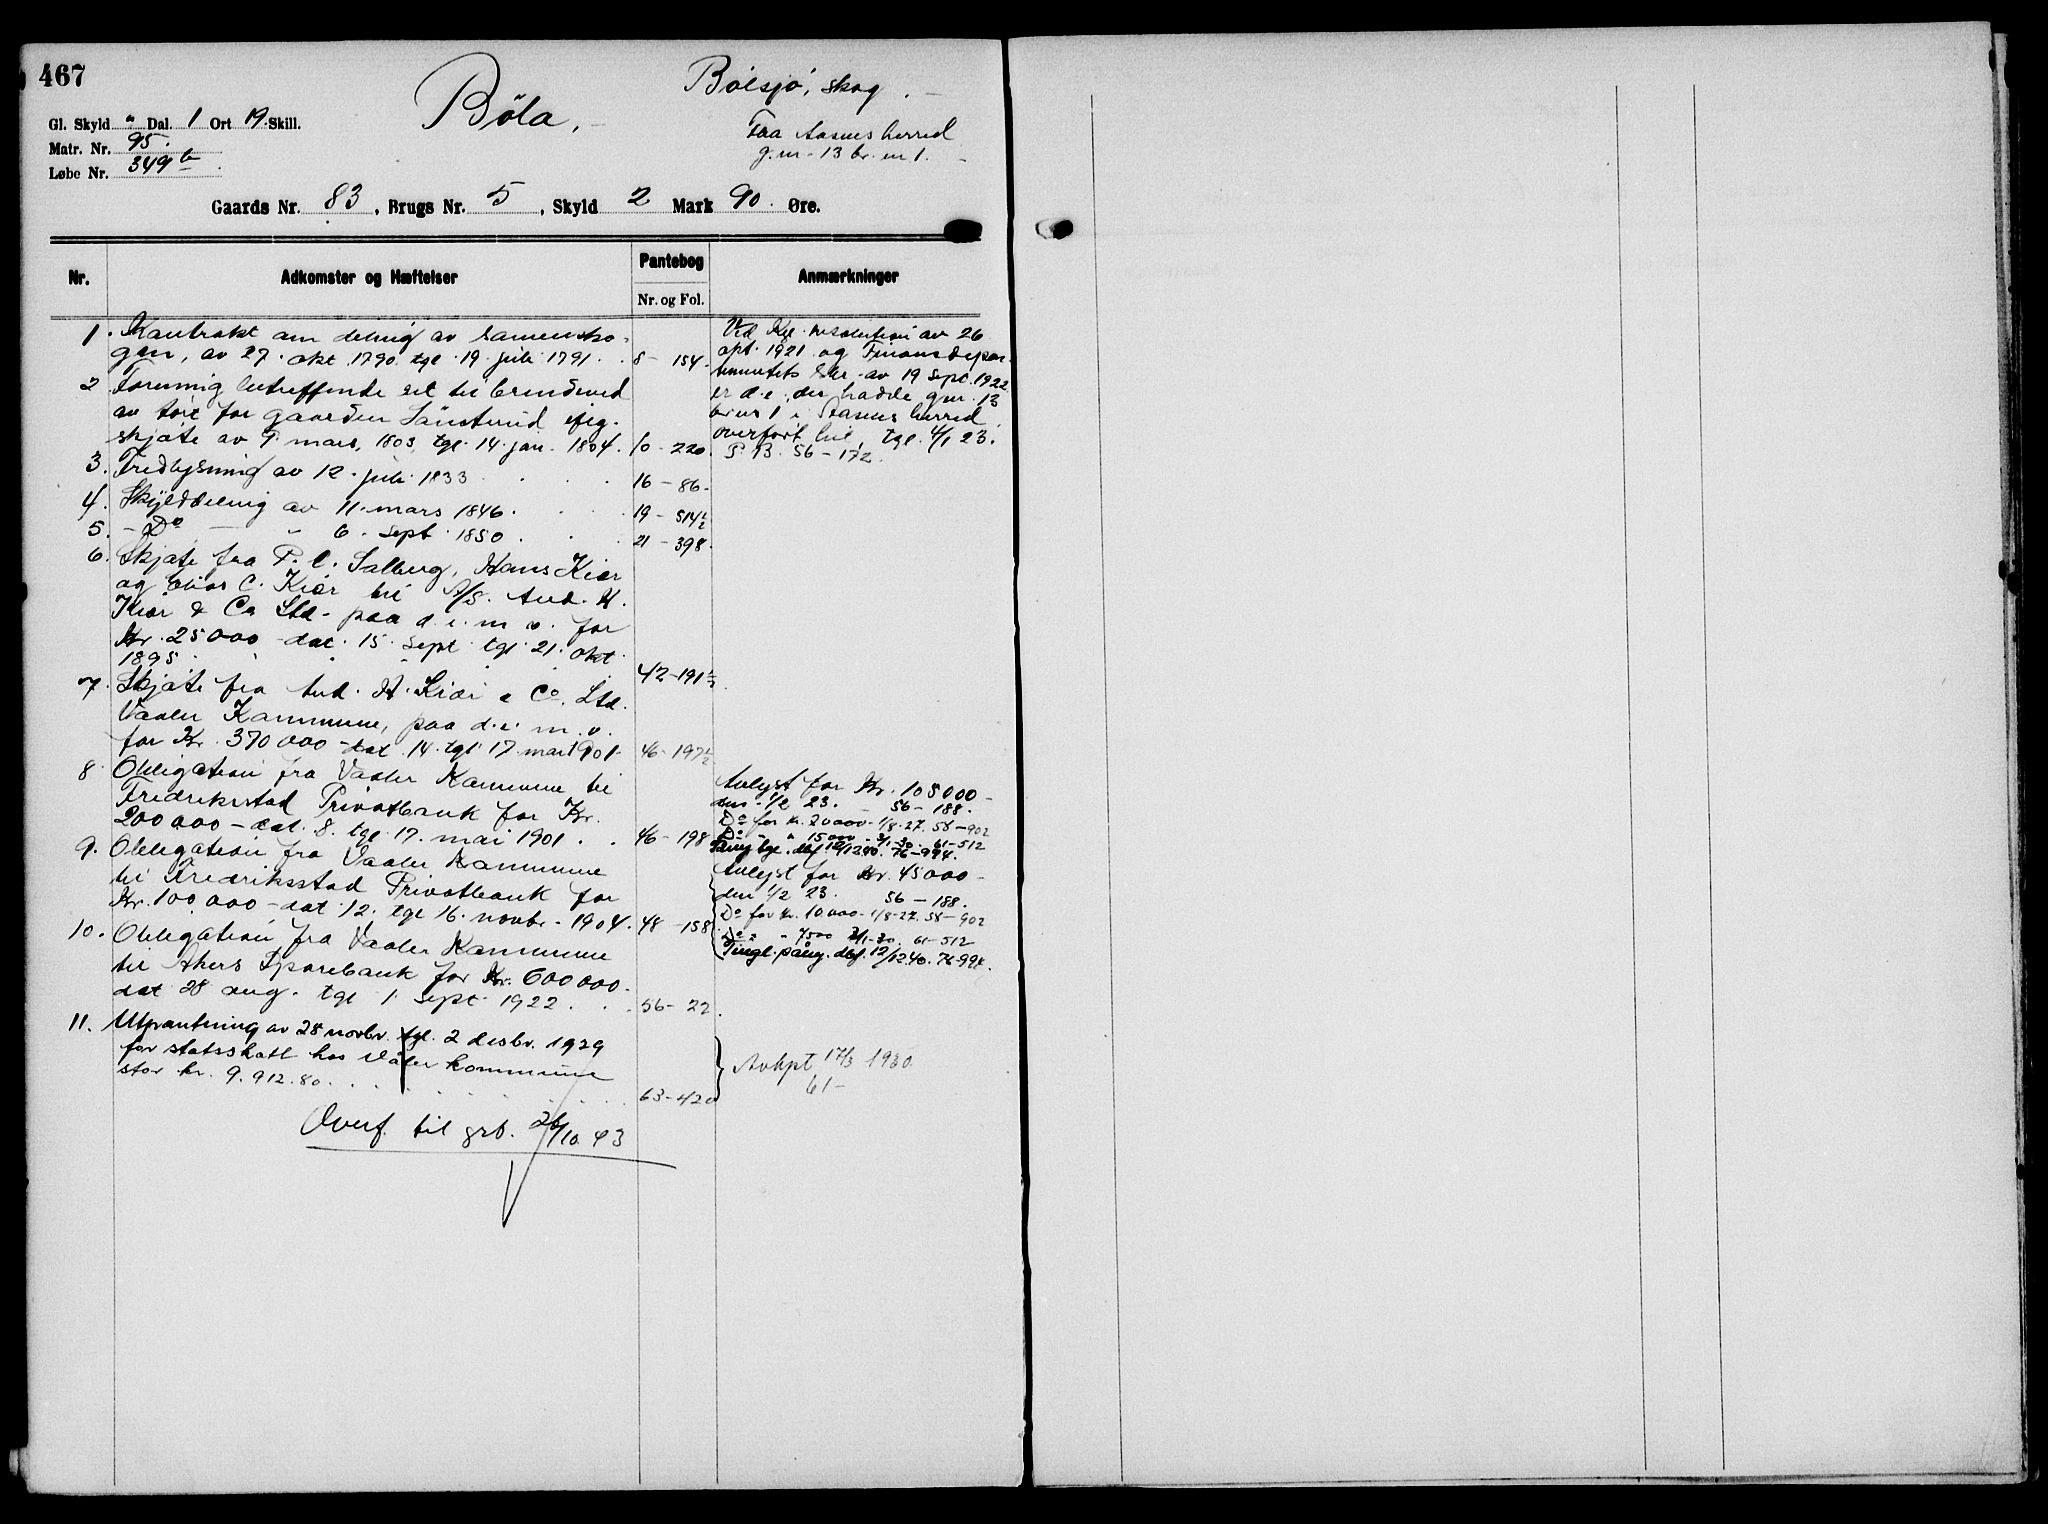 467
Böla.
Bölsjö, skog.
Gl. Skyld " Dal. 1 Ort 19 Skill.
Matr. Nr. 95.
Løbe Nr. 349 b
Fra Aasnes herred
g.nr. 13 br. nr 1.
Gaards Nr. 83, Brugs Nr. 5, Skyld 2 Mark 90 Øre.
Nr. Adkomster og Hæftelser Pantebog Anmærkninger
Nr. og Fol.
1. Kontrakt om deling av
gen, av 27. okt. 1790. tgl. 19. juli 1791. 8 - 154.
2 Forening betreffende ret til brændeved
av tört for gaarden ifig.
skjöte av 9. mars, 1803, tgl. 14. jan. 1804. 10 - 220.
3. Fredlysning av 12. juli 1833 16 - 86.
4. Skylddeling av 11. mars 1846. 19 - 514½
5. - Do - " 6. sept. 1850. 21 - 398.
6. Skjöte fra P. C. Salberg, Hans Kiær
og Elias C. Kiær til A/S. And. H.
Kiær & Co Ltd. paa d. e. m. v. for
Kr. 25000 - dat. 15. sept. tgl. 21. okt.
1895. 42-191½.
7. Skjöte fra And. H. Kiær & Co. Ltd.
Vaaler Kommune, paa d. e. m. v.
for Kr. 370 000 - dat. 14. tgl. 17. mai 1901. 46-197½
8. Obligation fra Vaaler Kommune til
Fredriksstad Privatbank for Kr.
200 000 - dat. 8. tgl. 17. mai 1901. 46-198
9. Obligation fra Vaaler Kommune
til Fredriksstad Privatbank for
Kr. 100 000 - dat. 12. tgl. 16. novbr. 1904. 48-158
10. Obligation fra Vaaler Kommune
til Akers Sparebank for Kr. 600 000.
dat 28 aug. tgl 1. sept. 1922. 56-22.
11. Utpantning av 28 novbr. tgl. 2 desbr. 1929
for statsskatt hos Våler kommune
stor kr. 9.912.80 63-420
Overf. til grb. 26/10 43
Ved Kgl. resolution av 26
1921 og Finansdepar-
tementets skr. av 19 sept. 1922
er d. e., der hadde gnr. 13
br.nr 1 i Aasnes herred
overfört hit, tgl. 4/1 23.
P. B. 56-172.
Avlyst for Kr. 105000 -
den 1/2 23. 56-188.
Do for kr. 20000 - 1/8-27. 58-902
Do - " 15000 - 2/1-30. 61-512
tgl. dbf 12/12 40. 76-994.
Avlyst for Kr. 45000 -
den 1/2 23. 56-188.
Do for kr. 10000 - 1/8-27. 58-902
Do " " 7500 2/1-30. 61-512
Tingl. påny. dbf. 12/12 40. 76-994.
Avlyst 17/3 1930.
61-